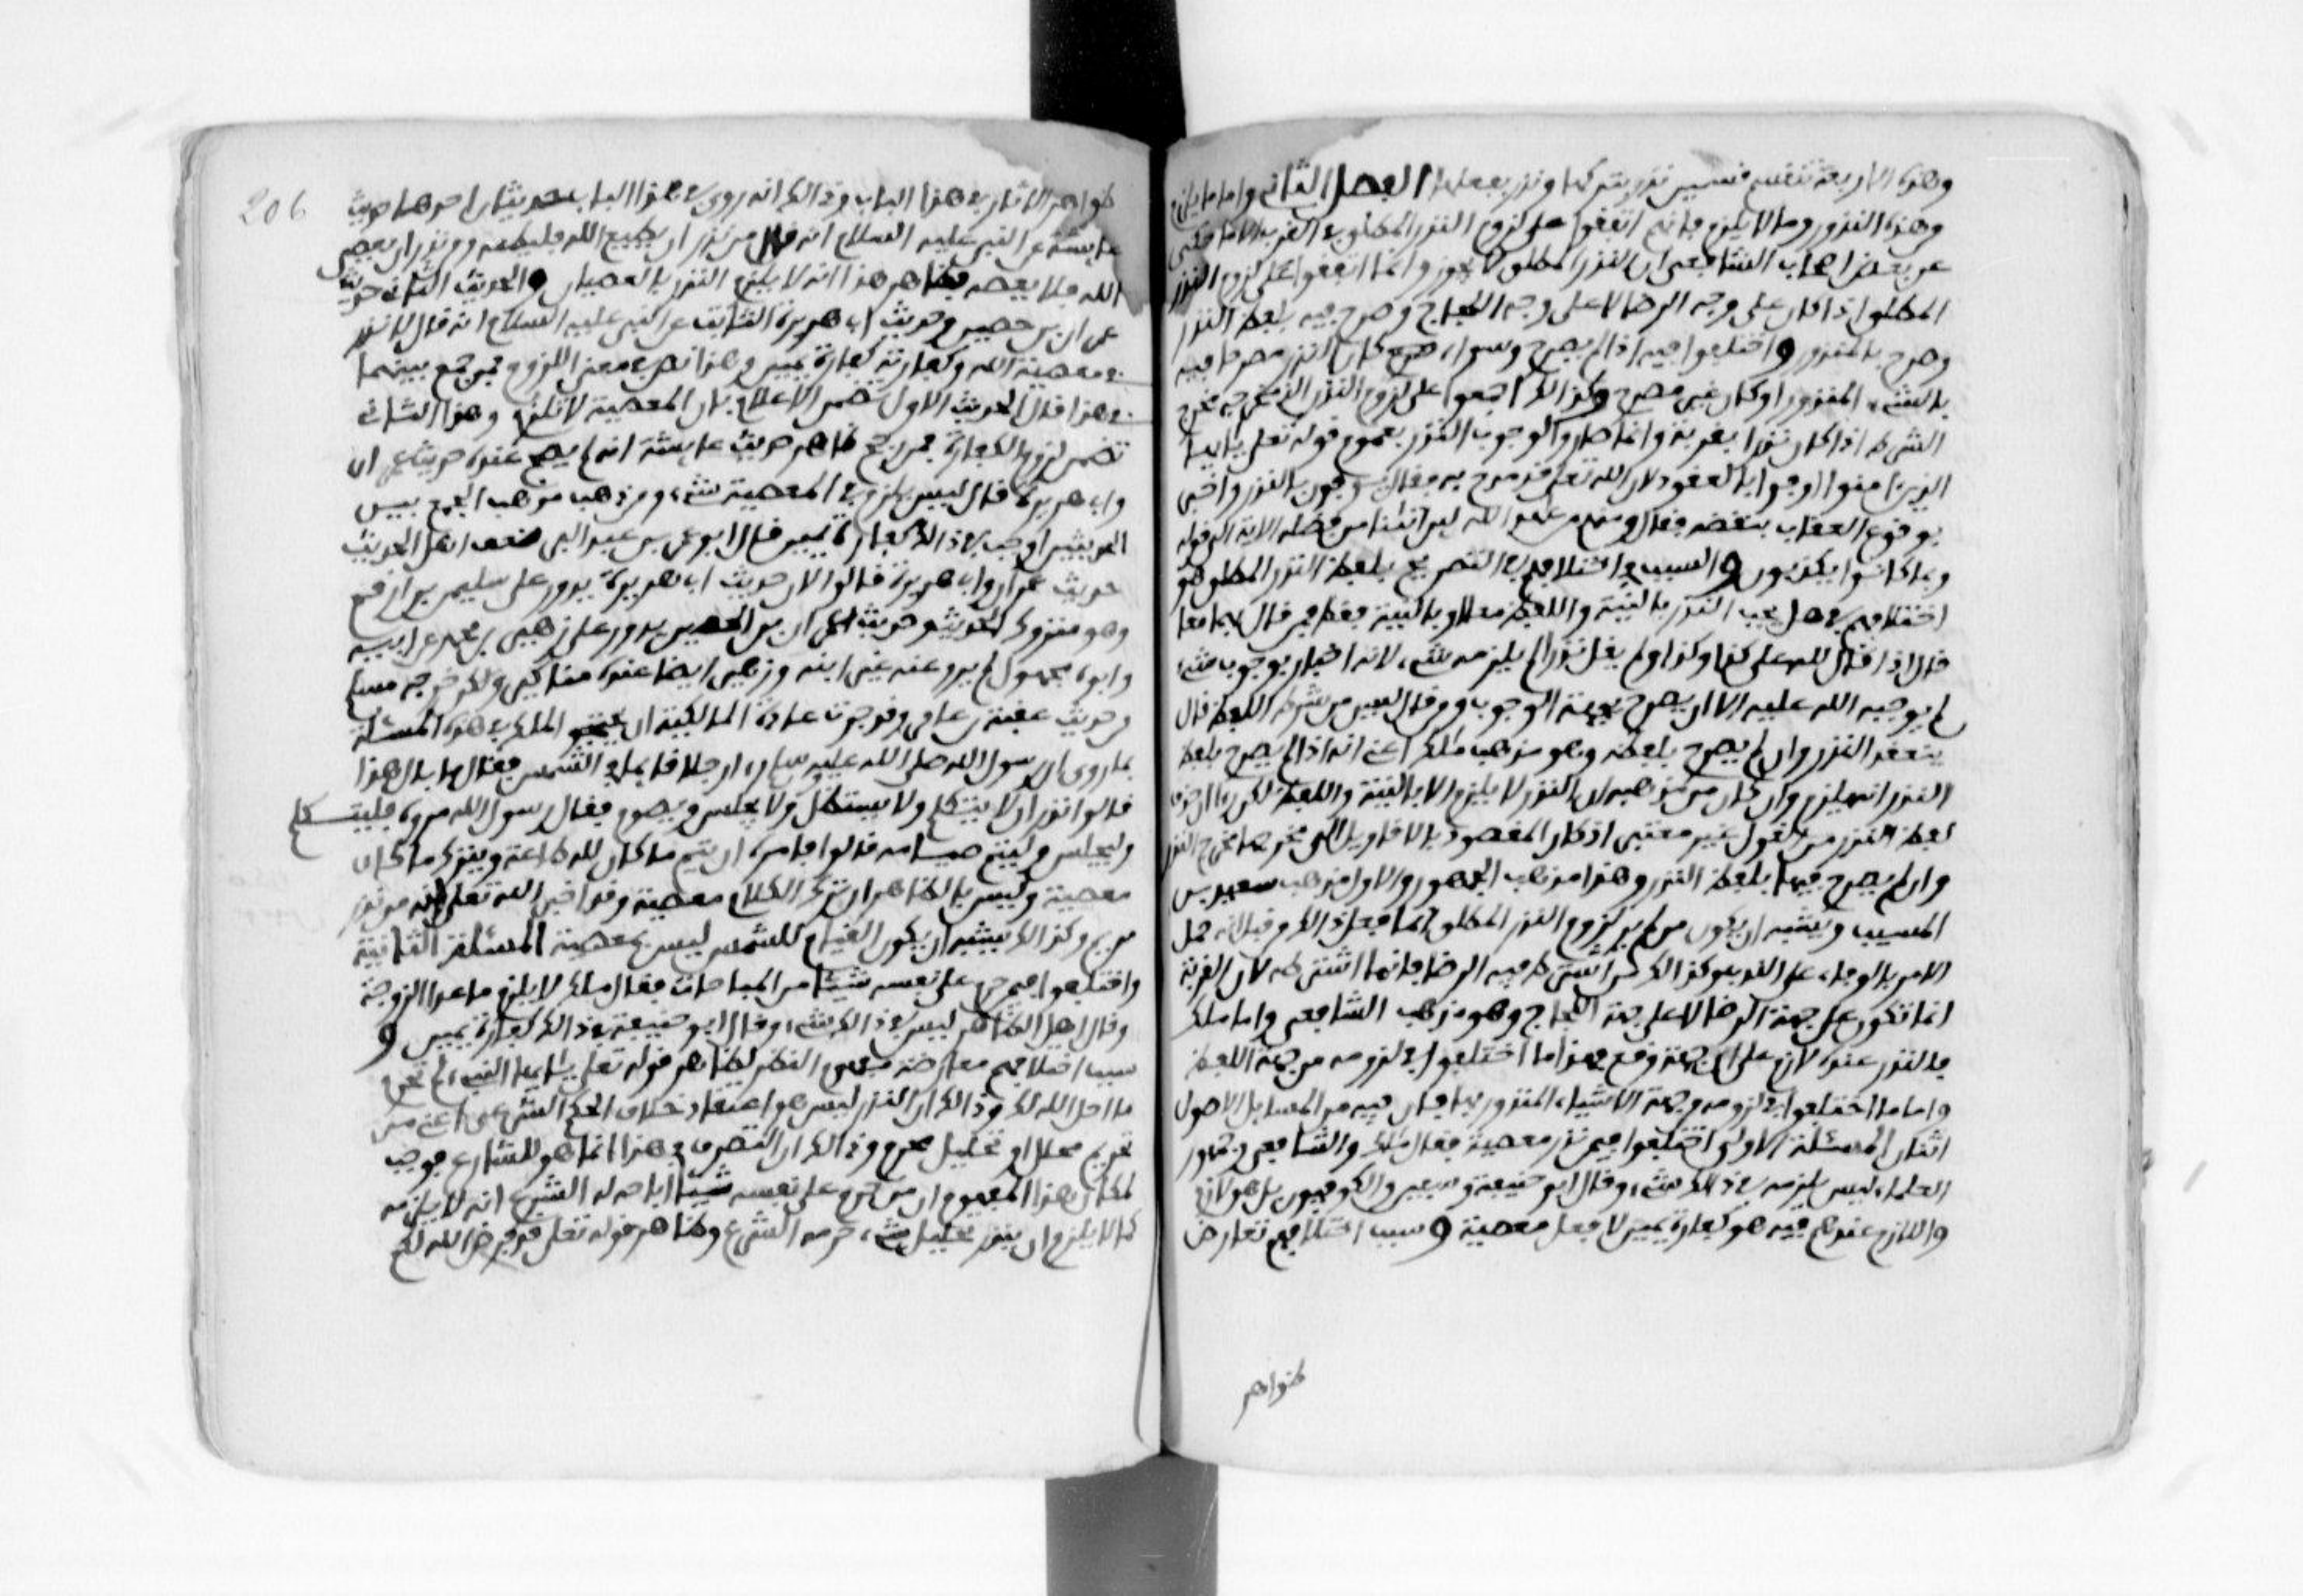 وهذه الاربعة تنقسم قسمين نذر بتركها ونذر بفعلها الفصل الثاني واما ما يلزم
وهذه النذور وما لا يلزم فانهم اتفقوا على لزوم النذر المطلق في القرب الا ما حكي
عن بعض اصحاب الشافعي ان النذر المطلق لا يجوز وانما اتفقوا على لزوم النذر
المطلق اذا كان على وجه الرضا لا على وجه اللجاج وصرح فيه بلفظ النذر
وصرح بالمنذور واختلفوا فيه اذا لم يصرح وسواء كان النذر مصرحا فيه
بالشيء المنذور او كان غير مصرح وكذالك اجمعوا على لزوم النذر الذي مخرجه مخرج
الشرط اذا كان نذرا بقربة وانما صاروا لوجوب النذر بعموم قوله تعلى يا ايها
الذين ءامنوا اوفوا بالعقود ولان الله تعلى قد مدح به فقال يوفون بالنذر واخبر
بوقوع العقاب بنقضه فقال ومنهم من عهد الله لين اتنا من فضله الاية الى قوله
وبما كانوا يكذبون والسبب في اختلافهم في التصريح بلفظ النذر المطلق هو
اختلافهم في هل يجب النذر بالنية واللفظ معا او بالنية فقط فمن قال بهما معا
قال اذا قال لله علي كذا وكذا ولم يقل نذرا لم يلزمه شيء لانه اخبار بوجوب شيء
لم يوجبه الله عليه الا ان يصرح بجهة الوجوب ومن قال ليس من شرطه اللفظ قال
ينعقد النذر وان لم يصرح بلفظه وهو مذهب ملك اعني انه اذا لم يصرح بلفظ
النذر انه يلزم وان كان من مذهبه ان النذر لا يلزم الا بالنية واللفظ لكن راى ان حذف
لفظ النذر من القول غير معتبر اذ كان المقصود بالاقاويل التي مخرجها مخرج النذر
وان لم يصرح فيها بلفظ النذر وهذا مذهب الجمهور والاول مذهب سعيد بن
المسيب ويشبه ان يكون من لم ير لزوم النذر المطلق انما فعل ذالك من قبل انه حمل
الامر بالوفاء على الندب وكذالك من اشترط فيه الرضا فانما اشترطه لان القربة
انما تكون على جهة الرضا لا على جهة اللجاج وهو مذهب الشافعي واما ملك
فالنذر عنده لازم على اي جهة وقع فهذا ما اختلفوا في لزومه من جهة اللفظ
واما ما اختلفوا في لزومه من جهة الاشياء المنذور بها فان فيه من المسايل الاصول
اثنان المسئلة الاولى اختلفوا فيمن نذر معصية فقال ملك والشافعي وجمهور
العلماء ليس يلزمه في ذالك شيء وقال ابو حنيفة وسفيان والكوفيون بل هو لازم
واللازم عندهم فيه هو كفارة يمين لا فعل معصية وسبب اختلافهم تعارض
ظواهر
206
ظواهر الاثار في هذا الباب وذالك انه روي في هذا الباب حديثان احدهما حديث
عايشة عن النبي عليه السلام انه قال من نذر ان يطيع الله فليطعه ومن نذر ان يعصي
الله فلا يعصه فظاهر هذا انه لا يلزم النذر بالعصيان والحديث الثاني حديث
عمران بن حصين وحديث ابي هريرة الثابت عن النبي عليه السلام انه قال لا نذر
في معصية الله وكفارته كفارة يمين وهذا نص في معنى اللزوم فمن جمع بينهما
في هذا قال الحديث الاول تضمن الاعلام بان المعصية لا تلزم وهذا الثاني
تضمن لزوم الكفارة فمن رجح ظاهر حديث عايشة اذ لم يصح عنده حديث عمران
وابي هريرة قال ليس يلزم في المعصية شيء ومن ذهب مذهب الجمع بين
الحديثين اوجب في ذالك كفارة يمين قال ابو عمر بن عبد البر ضعف اهل الحديث
حديث عمران وابي هريرة قالوا لان حديث ابي هريرة يدور على سليمن بن ارقم
وهو متروك الحديث وحديث عمران بن الحصين يدور على زهير بن محمد عن ابيه
وابوه مجهول لم يرو عنه غير ابنه وزهير ايضا عنده مناكير ولكن خرجه مسلم
من حديث عقبة بن عامر وقد جرت عادة المالكية ان يحتجوا لملك في هذه المسئلة
بما روي ان رسول الله صلى الله عليه وسلم راى رجلا قايما في الشمس فقال ما بال هذا
قالوا نذر ان لا يتكلم ولا يستظل ولا يجلس ويصوم فقال رسول الله مروه فليتكلم
وليجلس وليتم صيامه قالوا فامره ان يتم ما كان لله طاعة ويترك ما كان
معصية وليس بالظاهر ان ترك الكلام معصية وقد اخبر الله تعلى انه نذر
مريم وكذالك يشبه ان يكون القيام للشمس ليس بمعصية المسئلة الثانية
واختلفوا فيمن حرم على نفسه شيئا من المباحات فقال ملك لا يلزم ما عدا الزوجة
وقال اهل الظاهر ليس في ذالك شيء وقال ابو حنيفة في ذالك كفارة يمين و
سبب اختلافهم معارضة مفهوم النظر لظاهر قوله تعلى يا ايها النبيء لم تحرم
ما احل الله لك وذالك ان النذر ليس هو اعتقاد خلاف الحكم الشرعي اعني من
تحريم محلل او تحليل محرم وذالك ان التصرف في هذا انما هو للشارع فوجب
لمكان هذا المفهوم ان من حرم على نفسه شيئا اباحه له الشرع انه لا يلزمه
كما لا يلزم ان ينذر تحليل شيء حرمه الشرع وظاهر قوله تعلى قد فرض الله لكم